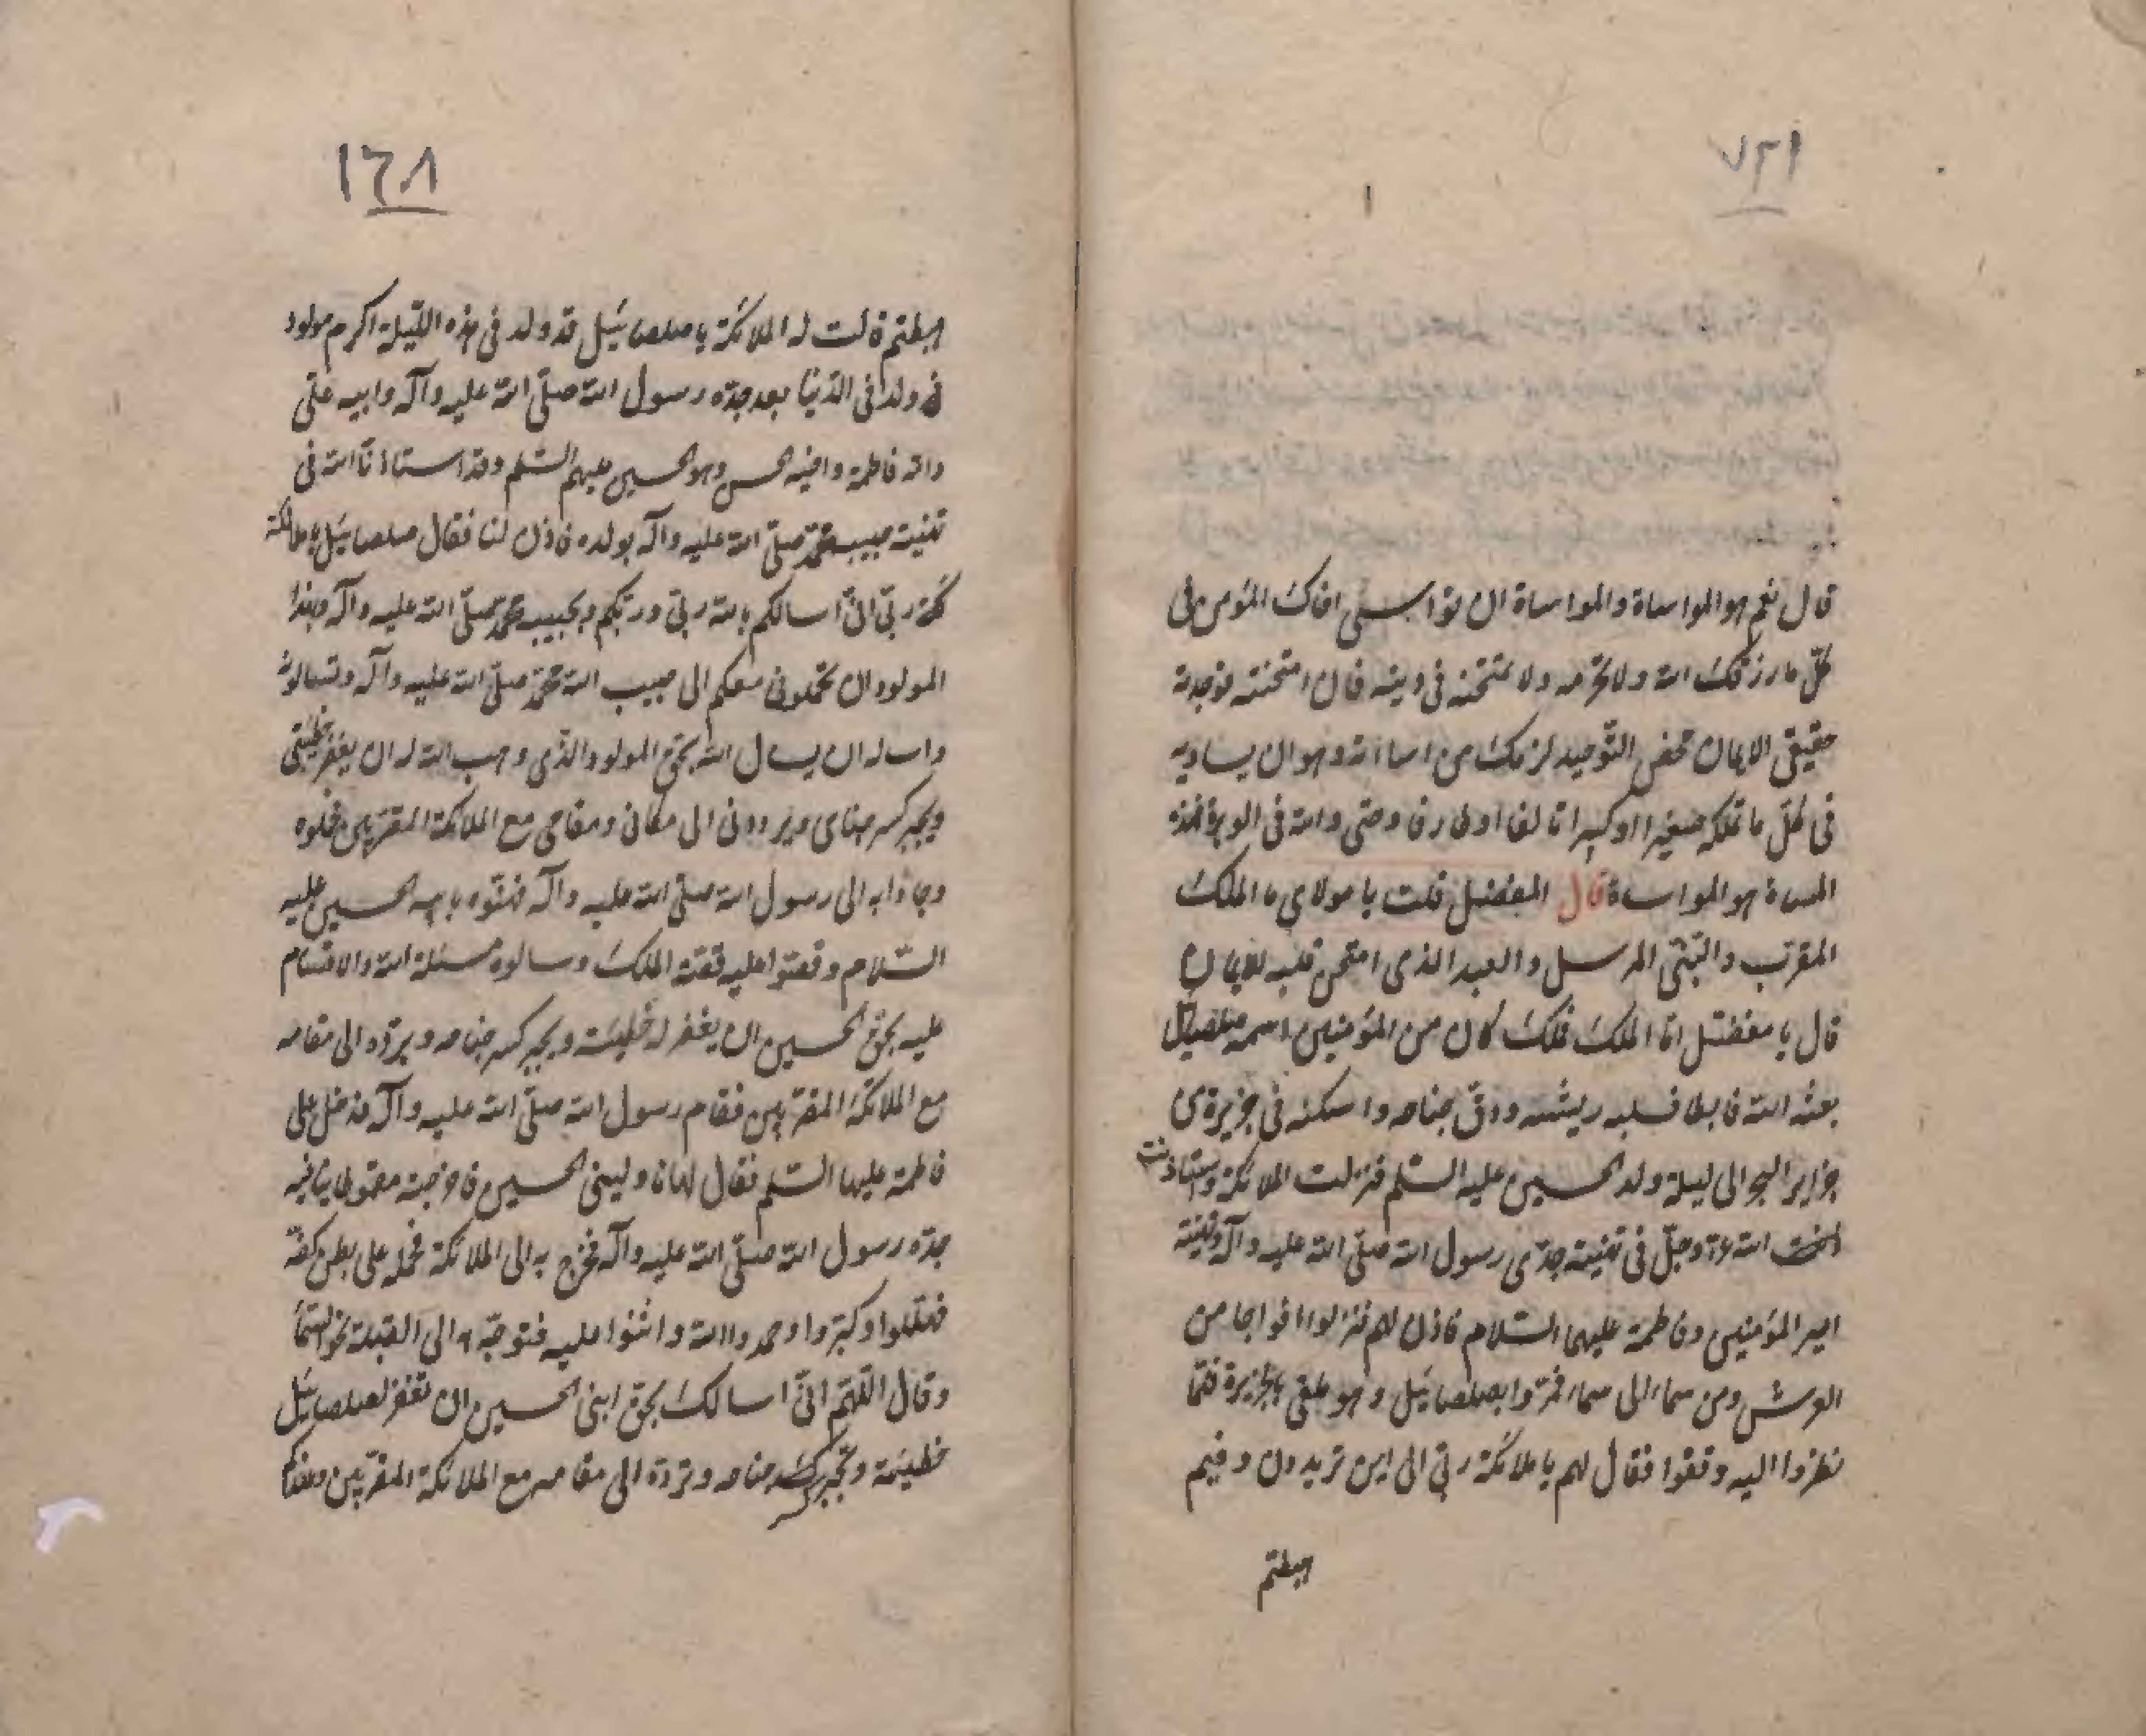 قال نعم هو المواساة والمواساة ان تواسى اخاك المؤمن فى
كلّ ما رزقك الله ولا تحرمه ولا تمتحنه فى دينه فان امتحنته فوجدته
حقيقى الايمان محض التّوحيد لزمك من اساءته وهو ان يساويه
فى كلّ ما تملكه صغيرا او كبيرا تالفا او طارفا وحتى والله فى الوبرة فهذه
المساة هو المواساة قال المفضّل قلت يا مولاى ما الملك
المقرّب والنّبىّ المرسل والعبد الذى امتحن قلبه للايمان
قال يا مفضّل امّا الملك فملك كان من المؤمنين اسمه صلصائيل
بعثه الله فابطا فسلبه ريشه ودقّ جناحه واسكنه فى جزيرة من
جزاير البحر الى ليلة ولد الحسين عليه السّلم فنزلت الملائكة واستاذنت
الله عزّ وجلّ فى تهنية جدّى رسول الله صلّى الله عليه وآله وتهنية
امير المؤمنين وفاطمة عليهما السّلام فاذن لهم فنزلوا افواجا من
العرش ومن سماء الى سماء فمرّوا بصلصائيل وهو ملقى بالجزيرة فلمّا
نظروا اليه وقفوا فقال لهم يا ملائكة ربّى الى اين تريدون وفيم
هبطتم
١٦٨
هبطتم قالت له الملائكة يا صلصائيل قد ولد فى هذه اللّيلة اكرم مولود
ولد فى الدّنيا بعد جدّه رسول الله صلّى الله عليه وآله وابيه علىّ
وامّه فاطمة واخيه الحسن وهو الحسين عليهم السّلم وقد استاذنّا الله فى
تهنية حبيبه محمّد صلّى الله عليه وآله بولده فاذن لنا فقال صلصائيل يا ملائكة
ربّى انّى اسالكم بالله ربّى وربّكم وبحبيبه محمّد صلّى الله عليه وآله وبهذا
المولود ان تحملونى معكم الى حبيب الله محمّد صلّى الله عليه وآله وتسالونه
واساله ان يسال الله بحقّ المولود الّذى وهب الله له ان يغفر خطيئتى
ويجبر كسر جناحى ويردونى الى مكانى ومقامى مع الملائكة المقرّبين فحملوه
وجاؤا به الى رسول الله صلّى الله عليه وآله فهنّوه بابنه الحسين عليه
السّلام وقصّوا عليه قصّة الملك وسالوه مسئلة الله والاقسام
عليه بحقّ الحسين ان يغفر له خطيئته ويجبر كسر جناحه ويردّه الى مقامه
مع الملائكة المقرّبين فقام رسول الله صلّى الله عليه وآله فدخل على
فاطمة عليها السّلم فقال لها ناولينى الحسين فاخرجته مقموطا يناغيه
جدّه رسول الله صلّى الله عليه وآله فخرج به الى الملائكة فحمله على بطن كفّه
فهلّلوا وكبّروا وحمدوا الله واثنوا عليه فتوجّه به الى القبلة نحو السّماء
وقال اللّهمّ انّى اسالك بحقّ ابنى الحسين ان تغفر لصلصائيل
خطيئته وتجبر كسر جناحه وتردّه الى مقامه مع الملائكة المقرّبين